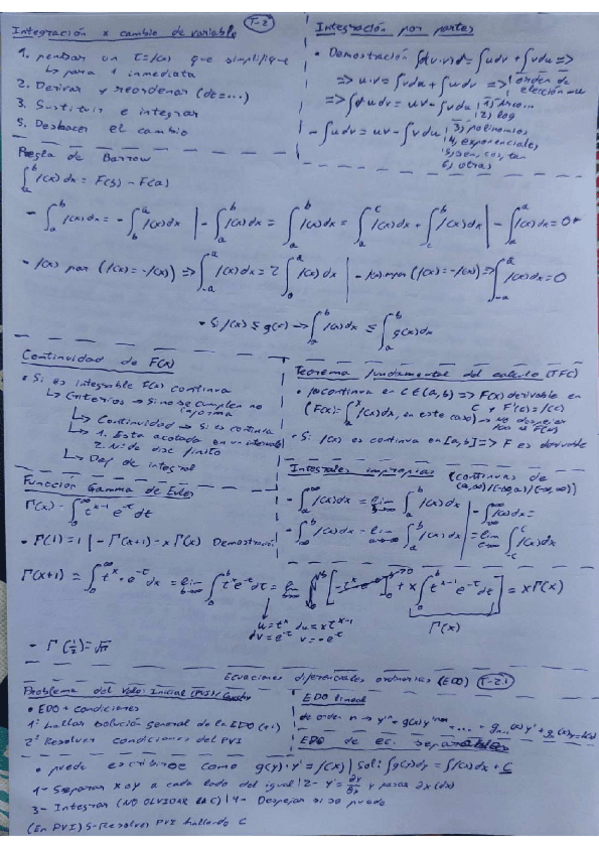 Integración x cambio de variable T-2
1. pensar un t=f(x) que simplifique
↳ para + inmediata
2. Derivar y reordenar (dt=...)
3. Sustituir e integrar
5. Deshacer el cambio
Integración por partes
• Demostración
=> u·v = ∫vdu + ∫udv =>
- ∫udv = uv - ∫vdu
orden de
elección
2) log
3) polinomios
4) exponenciales
5) sen, cos, tan
6) otras
Regla de Barrow
∫_a^b f(x)dx = F(b) - F(a)
- ∫_a^b f(x)dx = - ∫_b^a f(x)dx | - ∫_a^b f(x)dx = ∫_a^b f(x)dx = ∫_a^c f(x)dx + ∫_c^b f(x)dx | - ∫_a^a f(x)dx = 0
- f(x) par (f(x)=-f(x)) => ∫_{-a}^a f(x)dx = 2 ∫_0^a f(x)dx | - f(x) impar (f(x)=-f(x)) => ∫_{-a}^a f(x)dx = 0
• Si f(x) ≤ g(x) => ∫_a^b f(x)dx ≤ ∫_a^b g(x)dx
Continuidad de F(x)
• Si es integrable F(x) continua
↳ Criterios → Si no se cumplen no
informa
↳ Continuidad → Si es continua
↳ 1. Esta acotada en un intervalo
2. Nº de disc finito
↳ Def de integral
Teorema fundamental del calculo (TFC)
• f(x) continua en c∈(a,b) => F(x) derivable en
c y F'(c)=f(c)
en este caso
• Si f(x) es continua en [a,b] => F es derivable
Función Gamma de Euler
Γ(x) - ∫_0^∞ t^{x-1} e^{-t} dt
• Γ(1) = 1 | - Γ(x+1) - x Γ(x) Demostración
Integrales impropias (continuas de
(a,∞)/(-∞,a)/(-∞,∞))
- ∫_a^∞ f(x)dx = lim_{b→∞} ∫_a^b f(x)dx
Γ(x+1) = ∫_0^∞ t^x · e^{-t} dx = lim_{b→∞} ∫_0^b t^x e^{-t} dt = lim_{b→∞} [-t^x e^{-t}]_0^b + x ∫_0^b t^{x-1} e^{-t} dt = x Γ(x)
u = t^x du = x t^{x-1}
dv = e^{-t} v = -e^{-t}
Γ(x)
- Γ(1/2) = √π
Ecuaciones diferenciales ordinarias (EDO) T-2.1
Problema del Valor Inicial (PVI)
• EDO + condiciones
1º hallar solución general de la EDO
2º Resolver condiciones del PVI
EDO lineal
de orden n →
EDO de ec. separables
• puede escribirse como g(y)·y' = f(x) | sol: ∫g(y)dy = ∫f(x)dx + C
1- Separar x o y a cada lado del igual | 2- y' = ∂y/∂x y pasar ∂x (dx)
3- Integrar (NO OLVIDAR LA C) | 4- Despejar si se puede
(En PVI) 5- Resolver PVI hallando C